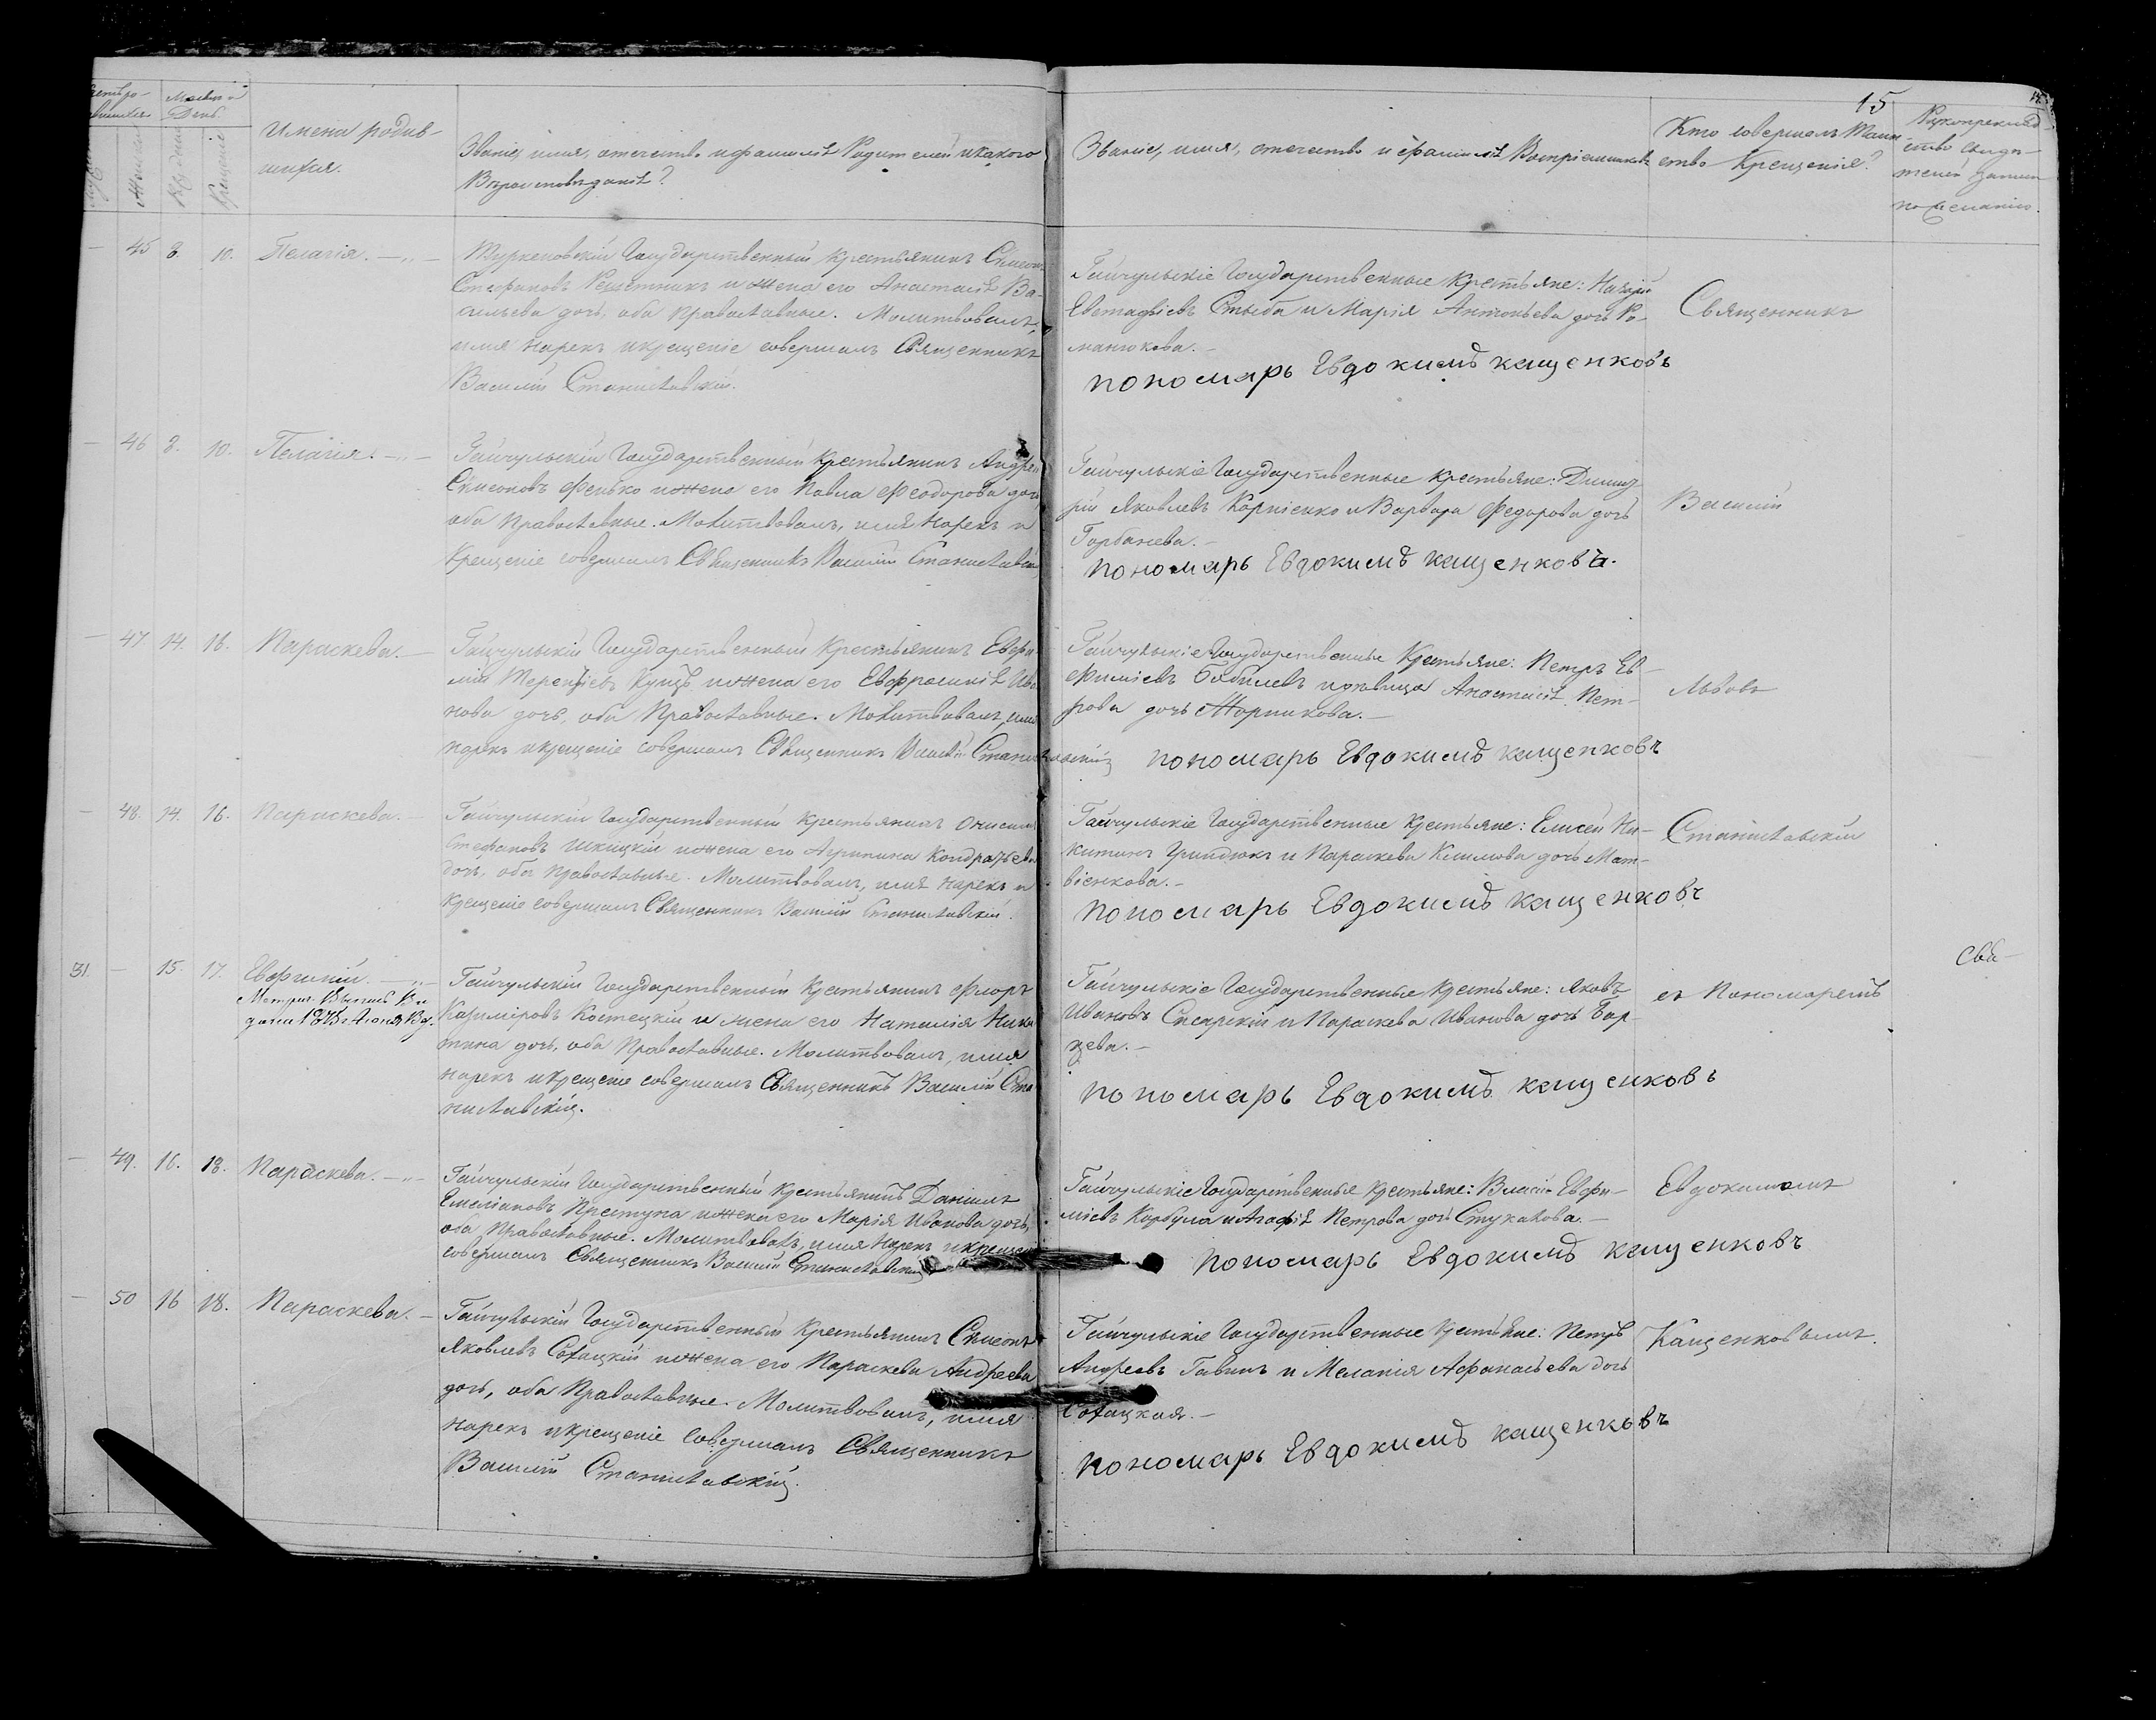 15
Мѣсяцъ и День
Имена родив-
шихся.
Званіе, имя, отечество и фамилія Родителей и какого
Вѣроисповѣданія?
Званіе, имя, отечество и фамилія Воспріемниковъ
Кто совершалъ Таин-
ство Крещенія?
Рукоприклад-
ство свидѣ-
телей записи
по желанію.
— 45 8. 10. Пелагія. — „ —
Государственный крестьянинъ Симеонъ
Стефановъ Решетникъ и жена его Анастасія Ва-
сильева дочь, оба Православные. Молитвовалъ,
имя нарекъ и крещеніе совершалъ Священникъ
Василій Станиславскій.
Гайчульскіе Государственные Крестьяне: Назарій
Евстафіевъ Стыба и Марія Антоньева дочь Ро-
манюкова. —
пономарь Евдокимъ кащенковъ
Священникъ
— 46 8. 10. Пелагія. — „ —
Гайчульскій Государственный Крестьянинъ Андрей
Симеоновъ Фенько и жена его Павла Феодорова дочь
оба Православные. Молитвовалъ, имя нарекъ и
Крещеніе совершалъ Священникъ Василій Станиславскій
Гайчульскіе Государственные Крестьяне: Димит-
рій Яковлевъ Корніенко и Варвара Федорова дочь
Горбанева. —
пономарь Евдокимъ кащенковъ.
Василій
— 47. 14. 16. Параскева. —
Гайчульскій Государственный Крестьянинъ Евфи-
мій Терентіевъ Купцъ и жена его Евфросинія Ива-
нова дочь, оба Православные. Молитвовалъ, имя
нарекъ и крещеніе совершалъ Священникъ Василій Станиславскій
Гайчульскіе Государственные Крестьяне: Петръ Ев-
фиміевъ Бобылевъ и дѣвица Анастасія Пет-
рова дочь
пономарь Евдокимъ кащенковъ
Львовъ
— 48. 14. 16. Параскева. —
Гайчульскій Государственный Крестьянинъ Онисимъ
Стефановъ Шкицкій и жена его Агрипина Кондратьева
дочь, оба Православные. Молитвовалъ, имя нарекъ и
крещеніе совершалъ Священникъ Василій Станиславскій.
Гайчульскіе Государственные Крестьяне: Елисей Ни-
китинъ Гриндюкъ и Параскева Климова дочь Мат-
віенкова. —
пономарь Евдокимъ кащенковъ
Станиславскій
31. — 15. 17. Евфимій. — „ —
Метрич. Выпись Вы-
дана
Гайчульскій Государственный Крестьянинъ Флоръ
Казиміровъ Костецкій и жена его Наталія Ники-
тина дочь, оба Православные. Молитвовалъ, имя
нарекъ и крещеніе совершалъ Священникъ Василій Ста-
ниславскій.
Гайчульскіе Государственные Крестьяне: Яковъ
Ивановъ и Параскева Иванова дочь Бар-
цева. —
пономарь Евдокимъ кащенковъ
съ Пономаремъ
— 49. 16. 18. Параскева. — „ —
Гайчульскій Государственный Крестьянинъ Даніилъ
Емеліановъ Преступа и жена его Марія Иванова дочь,
оба Православные. Молитвовалъ, имя нарекъ и крещеніе
совершалъ Священникъ Василій Станиславскій
Гайчульскіе Государственные Крестьяне: Власій Евфи-
міевъ Корбула и Агафія Петрова дочь Стукалова. —
пономарь Евдокимъ кащенковъ
Евдокимомъ
— 50 16 18. Параскева. —
Гайчульскій Государственный Крестьянинъ Симеонъ
Яковлевъ Солацкій и жена его Параскева Андреева
дочь, оба Православные. Молитвовалъ, имя
нарекъ и крещеніе совершалъ Священникъ
Василій Станиславскій.
Гайчульскіе Государственные Крестьяне: Петръ
Андреевъ Гавинъ и Меланія Афанасьева дочь
Солацкая. —
пономарь Евдокимъ кащенковъ
Кащенковымъ.